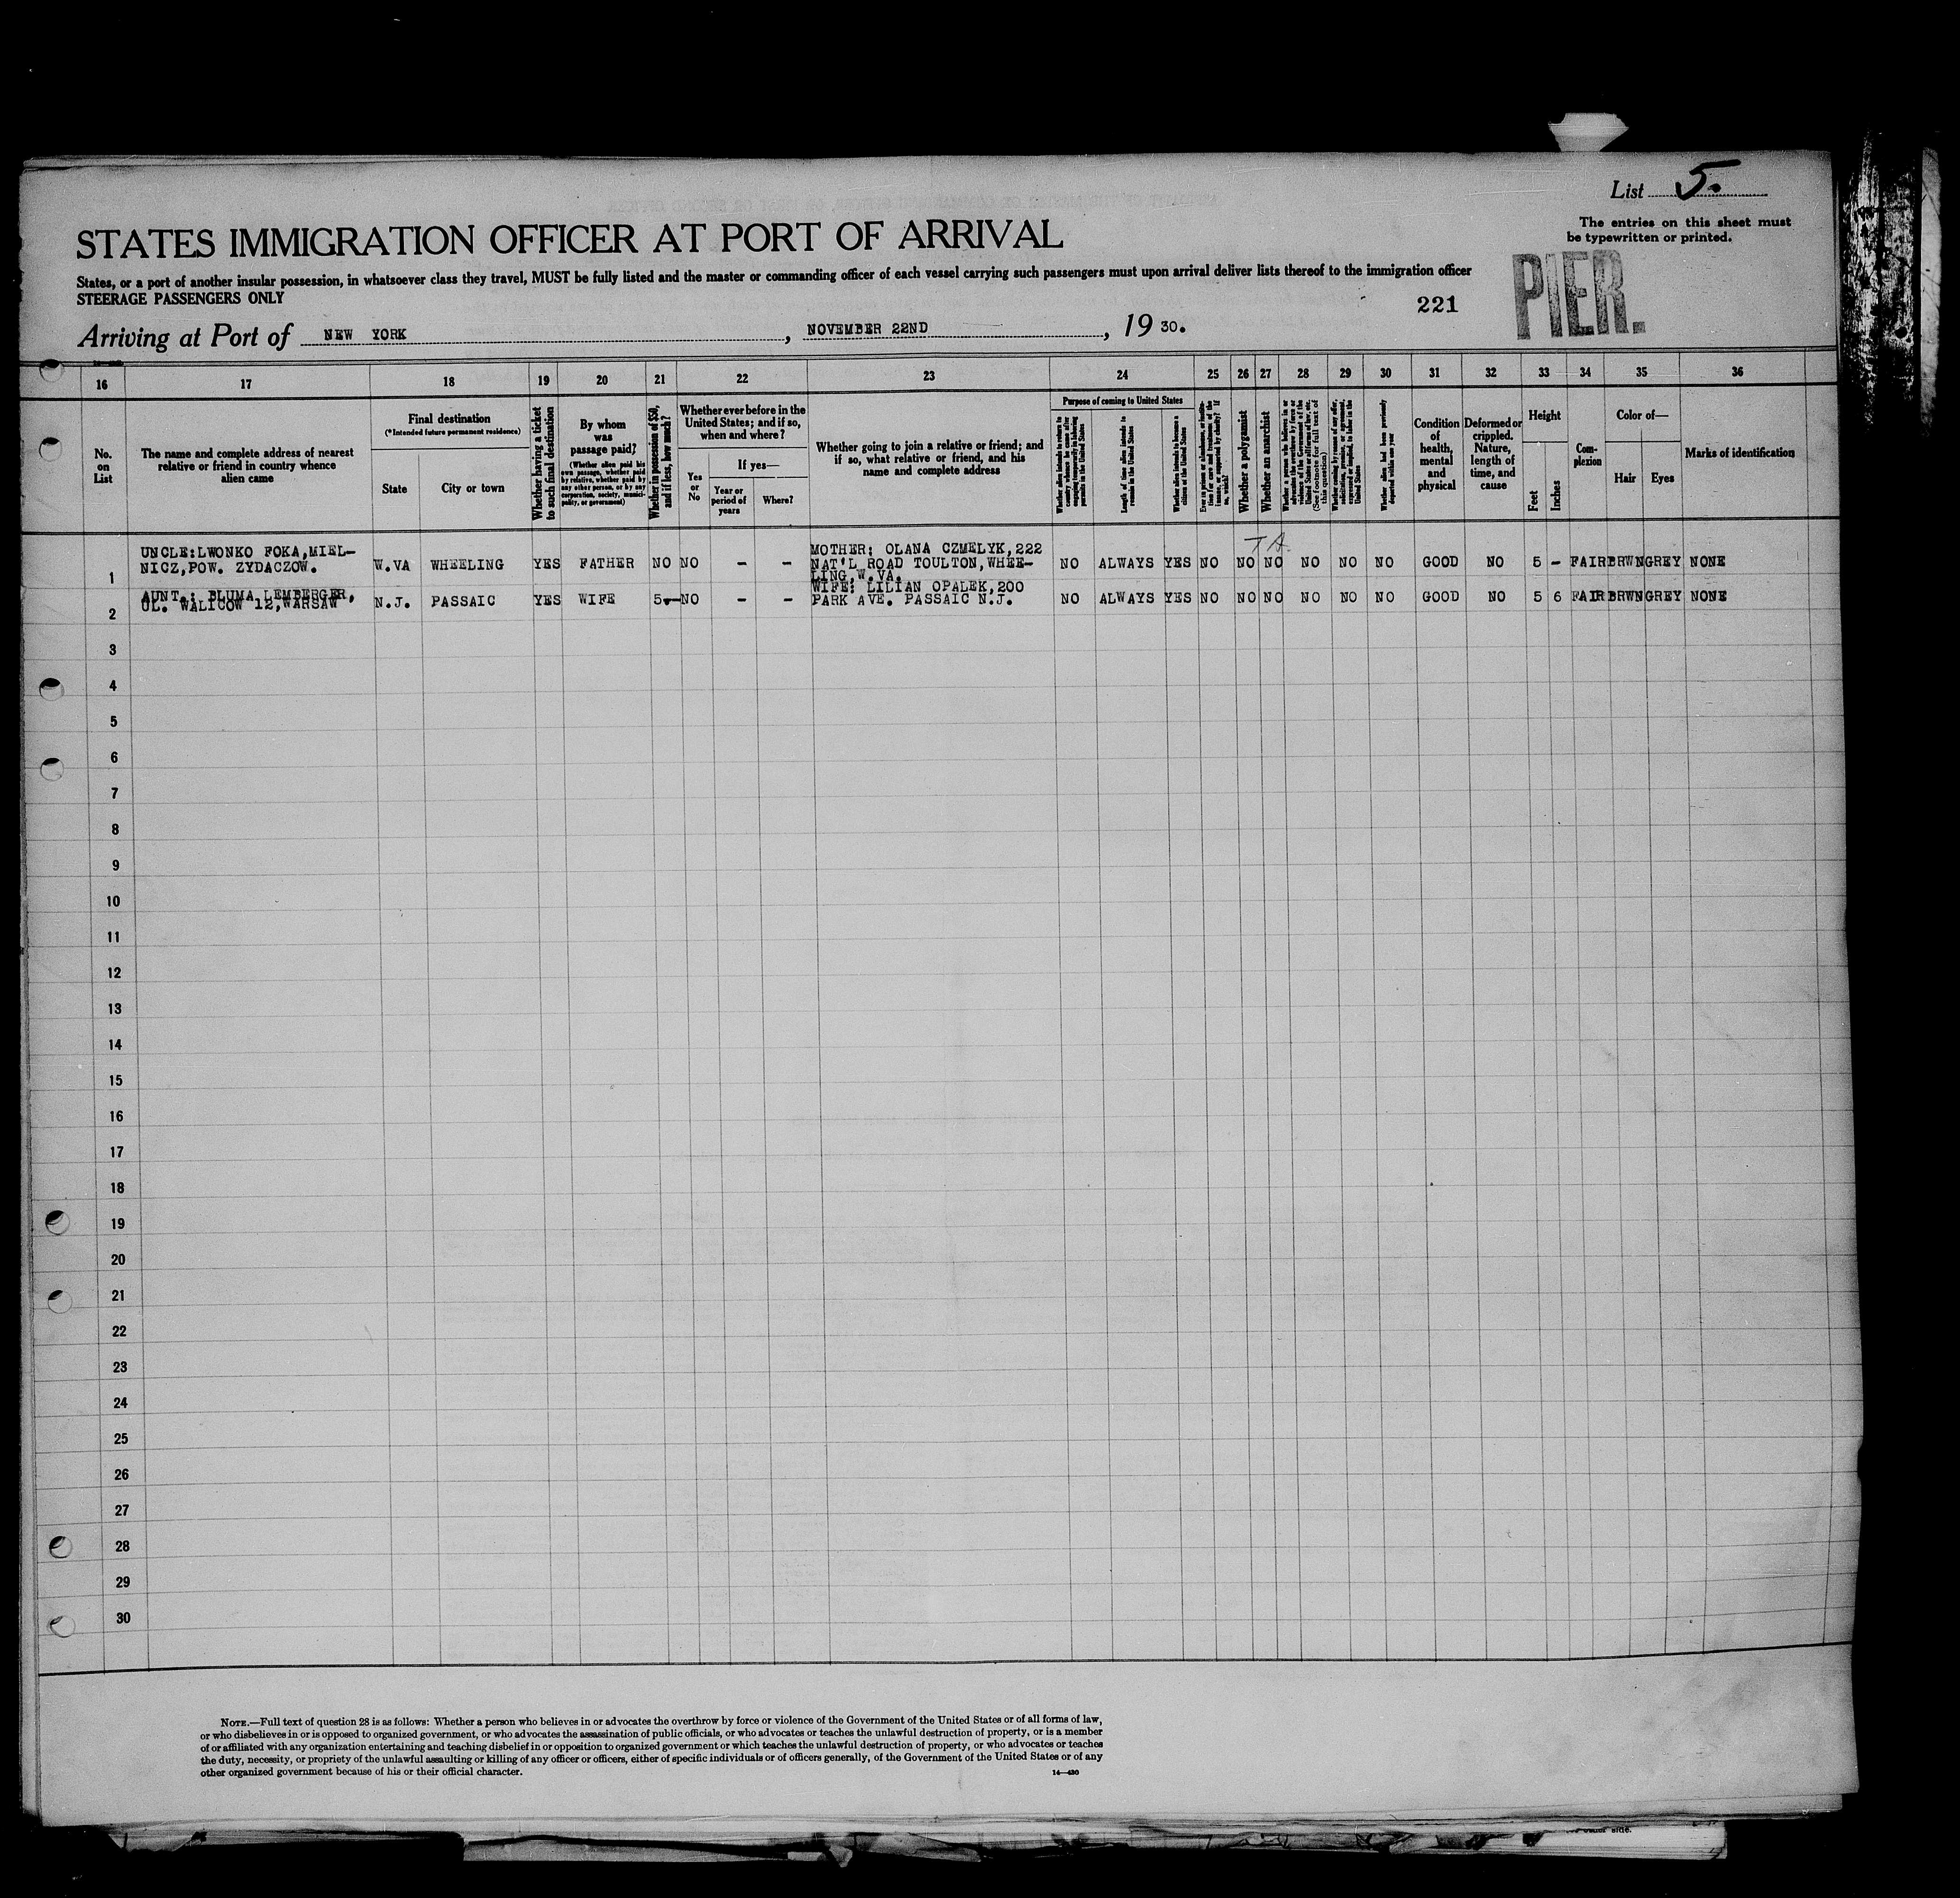 List 5.
The entries on this sheet must
be typewritten or printed.
STATES IMMIGRATION OFFICER AT PORT OF ARRIVAL
States, or a port of another insular possession, in whatsoever class they travel, MUST be fully listed and the master or commanding officer of each vessel carrying such passengers must upon arrival deliver lists thereof to the immigration officer
STEERAGE PASSENGERS ONLY
221
PIER.
Arriving at Port of NEW YORK, NOVEMBER 22ND, 19 30.
16 17 18 19 20 21 22 23 24 25 26 27 28 29 30 31 32 33 34 35 36
No.
on
List
The name and complete address of nearest
relative or friend in country whence
alien came
Final destination
(*Intended future permanent residence)
State
City or town
Whether having a ticket
to such final destination
By whom
was
passage paid?
(Whether alien paid his
own passage, whether paid
by relative, whether paid by
any other person, or by any
corporation, society, munici-
pality, or government)
Whether in possession of $50,
and if less, how much?
Whether ever before in the
United States; and if so,
when and where?
Yes
or
No
If yes—
Year or
period of
years
Where?
Whether going to join a relative or friend; and
if so, what relative or friend, and his
name and complete address
Purpose of coming to United States
Whether alien intends to return to
country whence he came after
engaging temporarily in laboring
pursuits in the United States
Length of time alien intends to
remain in the United States
Whether alien intends to become a
citizen of the United States
Ever in prison or almshouse, or institu-
tion for care and treatment of the
insane, or supported by charity? If
so, which?
Whether a polygamist
Whether an anarchist
Whether a person who believes in or
advocates the overthrow by force or
violence of the Government of the
United States or all forms of law, etc.
(See footnote for full text of
this question)
Whether coming by reason of any offer,
solicitation, promise, or agreement,
expressed or implied, to labor in the
United States
Whether alien had been previously
deported within one year
Condition
of
health,
mental
and
physical
Deformed or
crippled.
Nature,
length of
time, and
cause
Height
Feet
Inches
Com-
plexion
Color of—
Hair
Eyes
Marks of identification
TA
1 UNCLE:LWONKO FOKA,MIEL-
NICZ,POW. ZYDACZOW. W.VA WHEELING YES FATHER NO NO - - MOTHER: OLANA CZMELYK,222
NAT'L ROAD TOULTON,WHEE-
LING,W.VA. NO ALWAYS YES NO NO NO NO NO NO GOOD NO 5 - FAIR BRWN GREY NONE
2 AUNT.: BLUMA LEMBERGER,
UL. WALICOW 12,WARSAW N.J. PASSAIC YES WIFE 5.- NO - - WIFE: LILIAN OPALEK,200
PARK AVE. PASSAIC N.J. NO ALWAYS YES NO NO NO NO NO NO GOOD NO 5 6 FAIR BRWN GREY NONE
3
4
5
6
7
8
9
10
11
12
13
14
15
16
17
18
19
20
21
22
23
24
25
26
27
28
29
30
NOTE.—Full text of question 28 is as follows: Whether a person who believes in or advocates the overthrow by force or violence of the Government of the United States or of all forms of law,
or who disbelieves in or is opposed to organized government, or who advocates the assassination of public officials, or who advocates or teaches the unlawful destruction of property, or is a member
of or affiliated with any organization entertaining and teaching disbelief in or opposition to organized government or which teaches the unlawful destruction of property, or who advocates or teaches
the duty, necessity, or propriety of the unlawful assaulting or killing of any officer or officers, either of specific individuals or of officers generally, of the Government of the United States or of any
other organized government because of his or their official character.
14—430
other side.